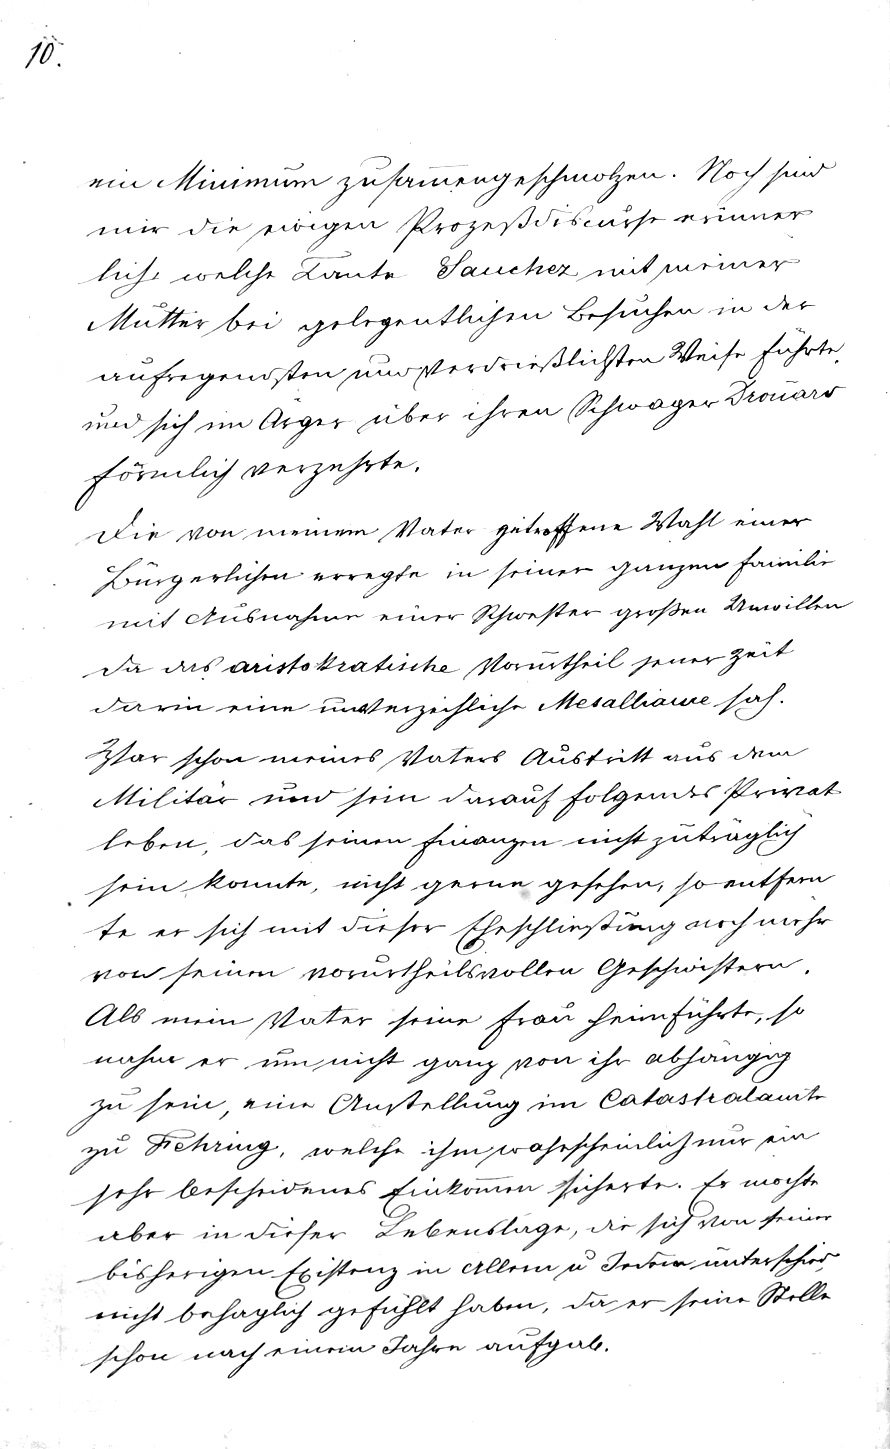 10.
ein Minimum zusam̅engeschmolzen. Noch sind
mir die ewigen Prozeßdiscurse erinner
lich, welche Tante Sanchez mit meiner
Mutter bei gelegentlichen Besuchen in der
aufregendsten und verdrießlichsten Weise führte,
und sich im Ärger über ihren Schwager Drouard
förmlich verzehrte.
Die von meinem Vater getroffene Wahl einer
Bürgerlichen erregte in seiner ganzen Familie
mit Ausnahme einer Schwester großen Unwillen
da das aristokratische Vorurtheil jener Zeit
darin eine unverzeihliche Mesalliance sah.
War schon meines Vaters Austritt aus dem
Militär und sein darauf folgendes Privat
leben, das seinen Finanzen nicht zuträglich
sein konnte, nicht gerne gesehen, so entfern
te er sich mit dieser Eheschließung noch mehr
von seinen vorurtheilsvollen Geschwistern.
Als mein Vater seine Frau heimführte, so
nahm er um nicht ganz von ihr abhängig
zu sein, eine Anstellung im Catastralamte
zu Fehring, welche ihm wahrscheinlich nur ein
sehr bescheidenes Einkom̅en sicherte. Er mochte
aber in dieser Lebenslage, die sich von seiner
bisherigen Existenz in Allem u Jedem unterschied
nicht behaglich gefühlt haben, da er seine Stelle
schon nach einem Jahre aufgab.